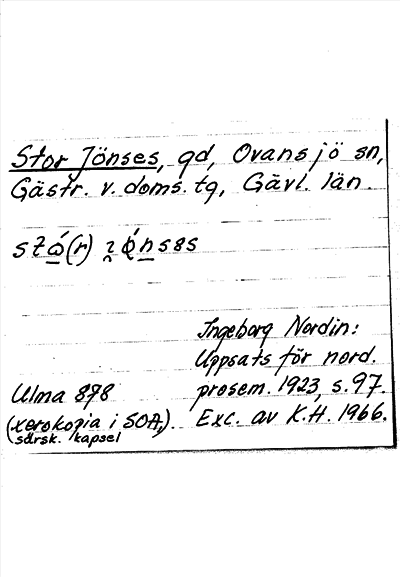 Stor Jönses, gd, Ovansjö sn,
Gästr. v. doms. tg, Gävl. län.
Ingeborg Nordin:
Uppsats för nord.
Ulma 878 prosem. 1923, s. 97.
(xerokopia i SOA,). Exc. av K.H. 1966.
särsk. kapsel